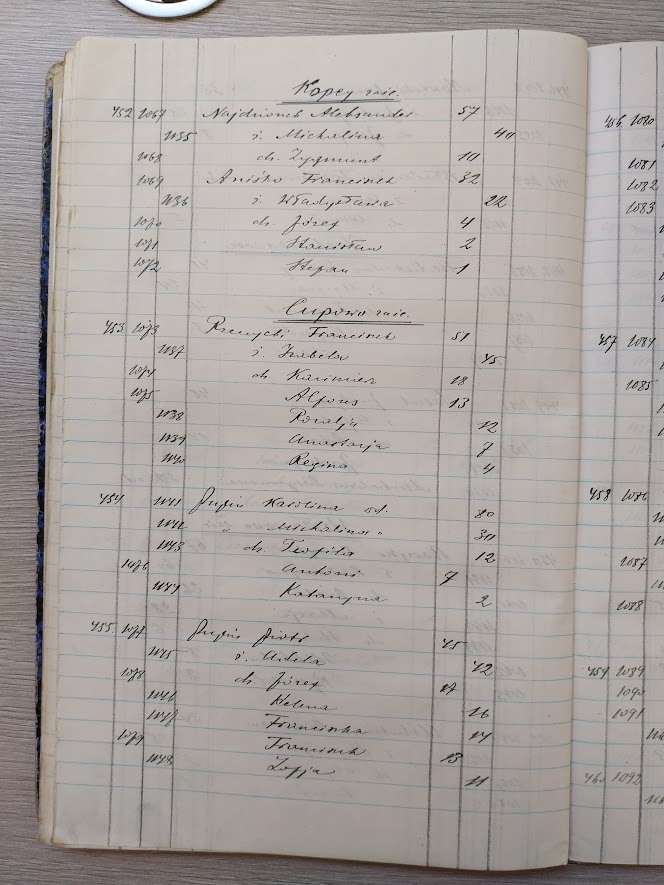 Kopcy zaśc.
452 1067 Najdzionek Aleksander 57
1135 ż. Michalina 40
1068 dz. Zygmunt 10
1069 Aniśko Franciszek 32
1136 ż. Władysława 22
1070 dz. Józef 4
1071 Stanisław 2
1072 Stefan 1
Cupowo zaśc.
453 1073 Franciszek 51
1137 ż. Izabela 45
1074 dz. Kazimierz 18
1075 Alfons 13
1138 Rozalja 12
1139 Anastazja 7
1140 Regina 4
454 1141 Karolina wd. 80
1142 " Michalina " 30
1143 dz. Teofila 12
1076 Antoni 7
1144 Katarzyna 2
455 1077 Piotr 45
1145 ż. Adela 42
1078 dz. Józef 17
1146 Helena 16
1147 Franciszka 14
1079 Franciszek 13
1148 Zofja 11
456 1080
1081
1082
1083
457 1084
1085
458 1086
1087
1088
459 1089
1090
1091
460 1092